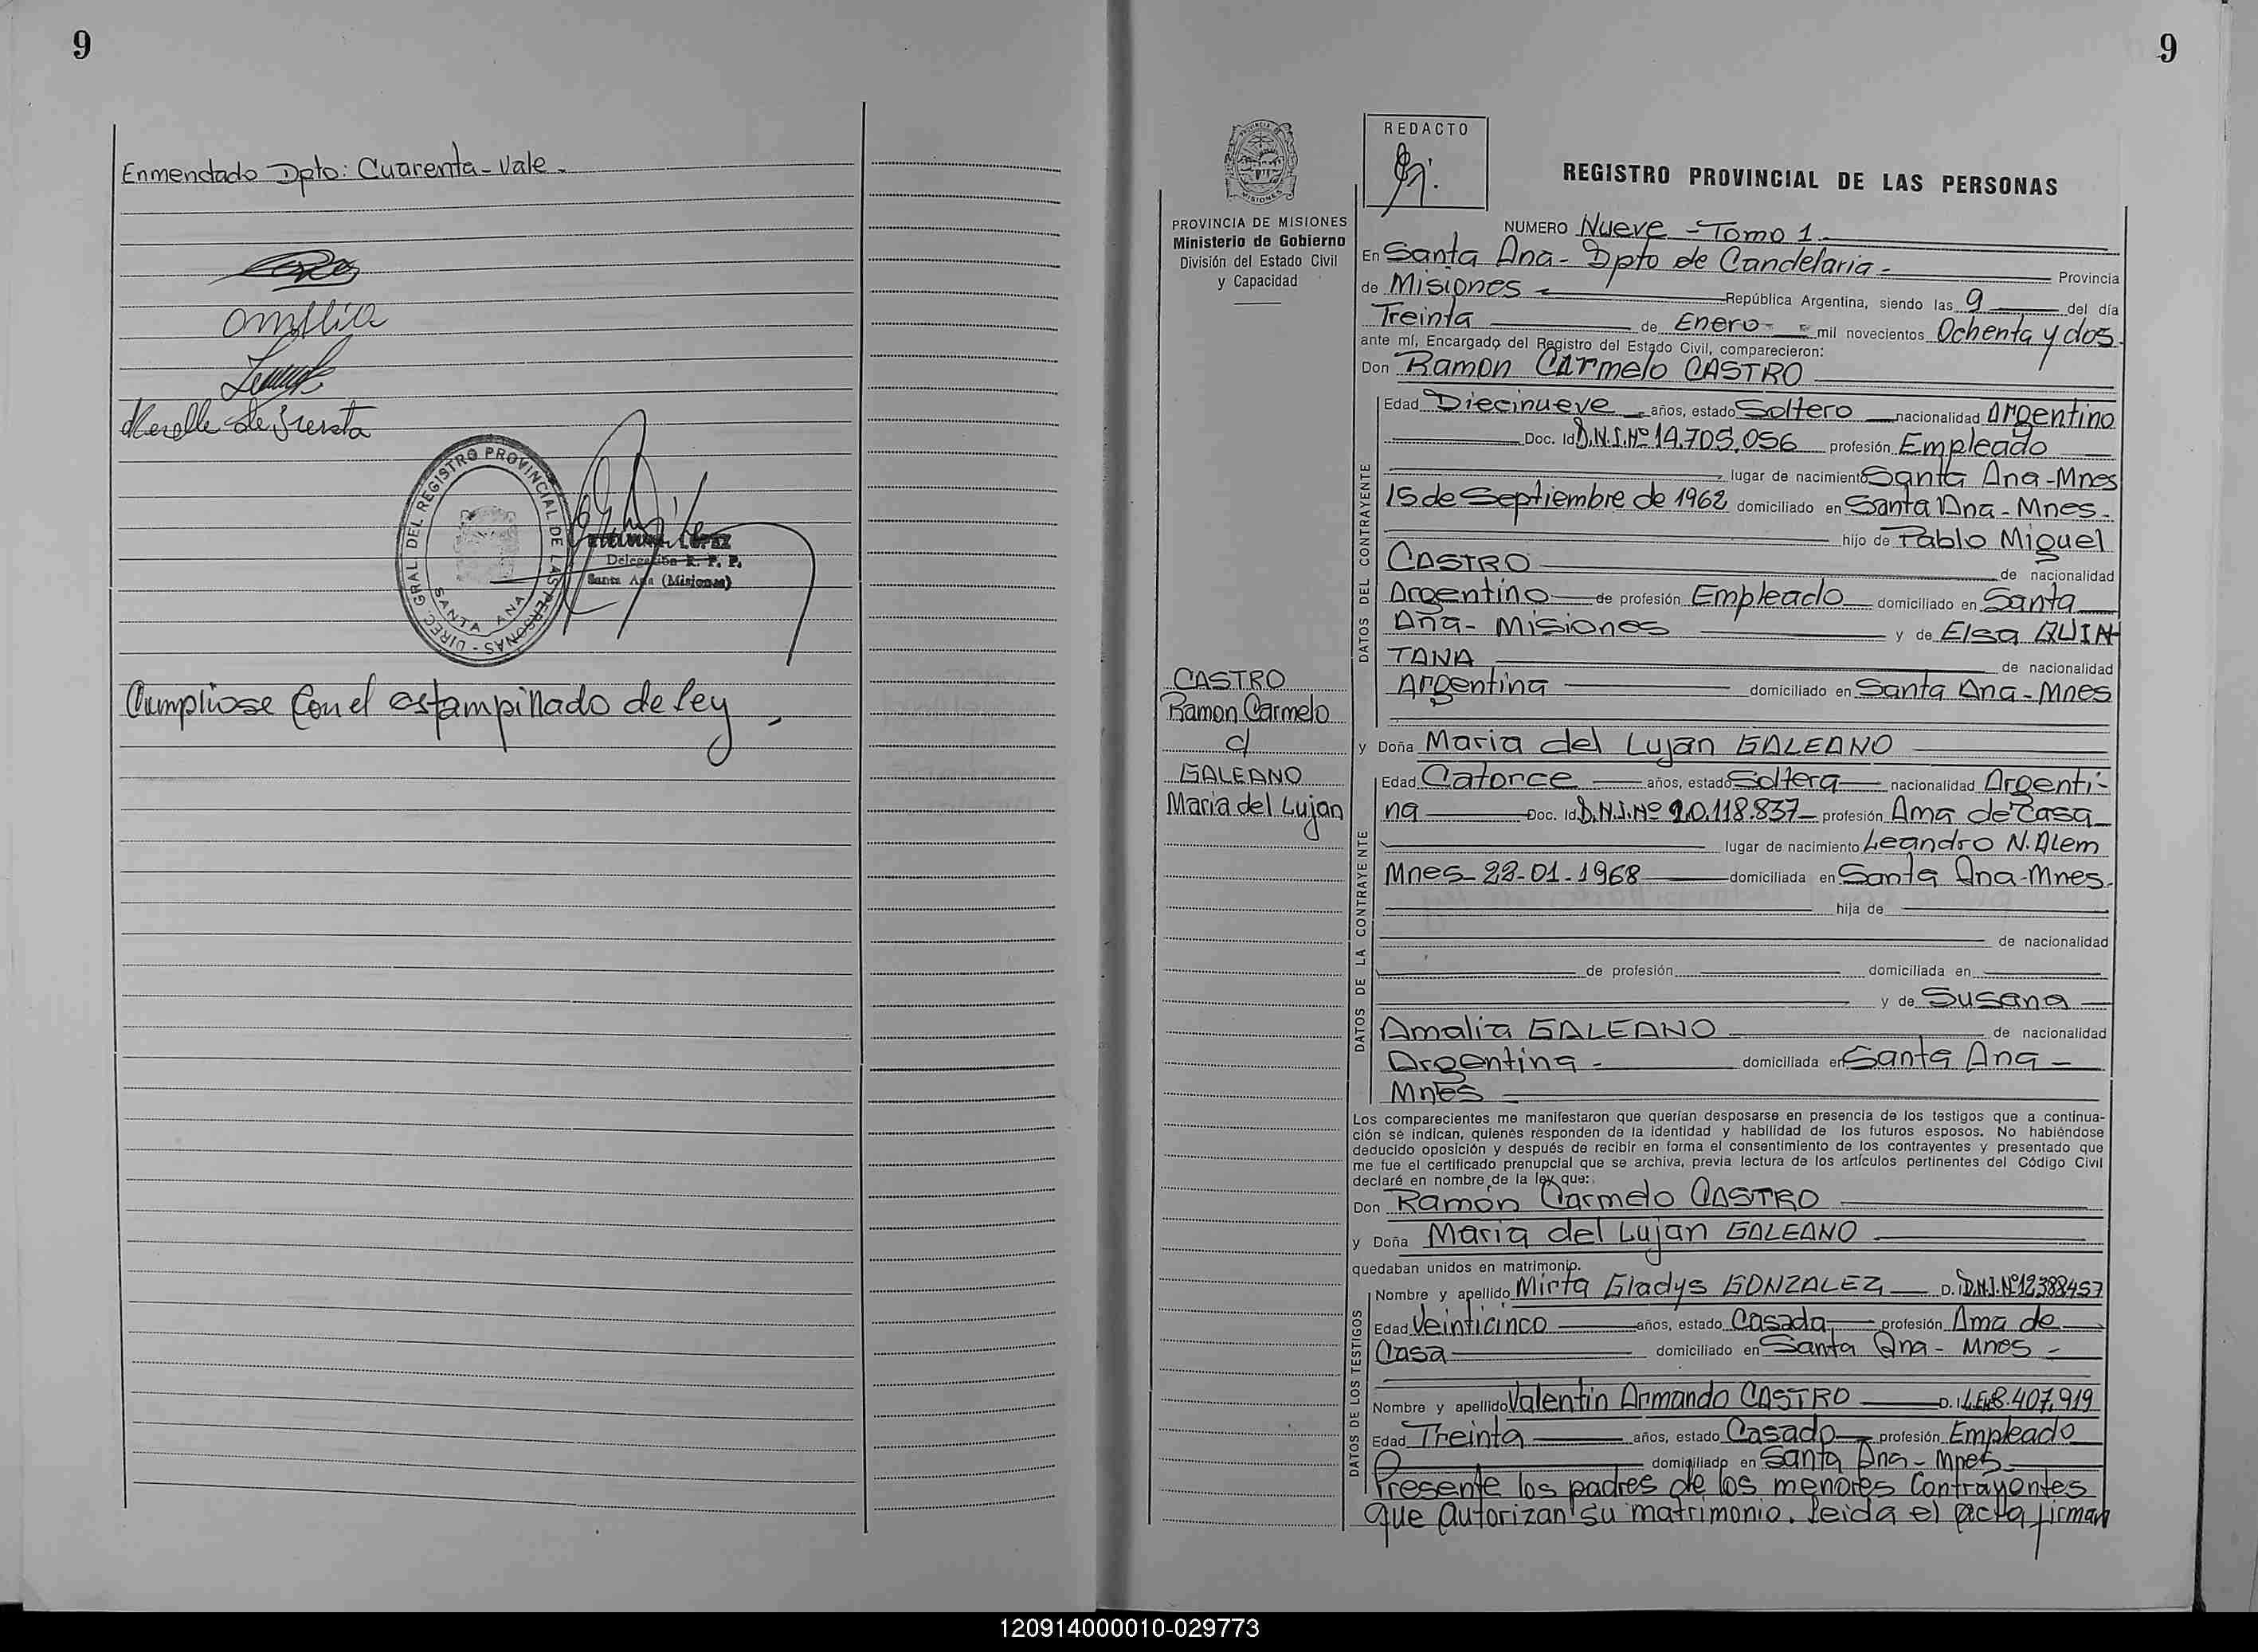 9
Enmendado Dpto: Cuarenta - Vale -
DIREC. GRAL. DEL REGISTRO PROVINCIAL DE LAS PERSONAS -
SANTA ANA
LOPEZ
Delegación R. P. P.
Santa Ana (Misiones)
Cumpliose con el estampillado de ley -
9
PROVINCIA DE MISIONES
Ministerio de Gobierno
División del Estado Civil
y Capacidad
CASTRO
Ramon Carmelo
c/
GALEANO
Maria del Lujan
REDACTO
REGISTRO PROVINCIAL DE LAS PERSONAS
NUMERO Nueve - Tomo 1
En Santa Ana - Dpto de Candelaria - Provincia
de Misiones - República Argentina, siendo las 9 del día
Treinta de Enero - mil novecientos Ochenta y dos
ante mí, Encargado del Registro del Estado Civil, comparecieron:
Don Ramon Carmelo CASTRO
DATOS DEL CONTRAYENTE
Edad Diecinueve años, estado Soltero nacionalidad Argentino
Doc. Id D.N.I. Nº 14.705.056 profesión Empleado
lugar de nacimiento Santa Ana - Mnes
15 de Septiembre de 1962 domiciliado en Santa Ana - Mnes -
hijo de Pablo Miguel
CASTRO de nacionalidad
Argentino de profesión Empleado domiciliado en Santa
Ana - Misiones y de Elsa QUIN
TANA de nacionalidad
Argentina domiciliado en Santa Ana - Mnes
y Doña Maria del Lujan GALEANO
DATOS DE LA CONTRAYENTE
Edad Catorce años, estado Soltera nacionalidad Argenti-
na Doc. Id. D.N.I. Nº 20.118.837 profesión Ama de Casa
lugar de nacimiento Leandro N. Alem
Mnes - 22-01-1968 domiciliada en Santa Ana - Mnes.
hija de
de nacionalidad
de profesión domiciliada en
y de Susana
Amalia GALEANO de nacionalidad
Argentina - domiciliada en Santa Ana -
Mnes
Los comparecientes me manifestaron que querían desposarse en presencia de los testigos que a continua-
ción se indican, quienes responden de la identidad y habilidad de los futuros esposos. No habiéndose
deducido oposición y después de recibir en forma el consentimiento de los contrayentes y presentado que
me fue el certificado prenupcial que se archiva, previa lectura de los artículos pertinentes del Código Civil
declaré en nombre de la ley que:
Don Ramón Carmelo CASTRO
y Doña Maria del Lujan GALEANO
quedaban unidos en matrimonio.
DATOS DE LOS TESTIGOS
Nombre y apellido Mirta Gladys GONZALEZ D. I D.N.I. Nº 12388457
Edad Veinticinco años, estado Casada profesión Ama de
Casa domiciliado en Santa Ana - Mnes -
Nombre y apellido Valentin Armando CASTRO D. I L.E. Nº 8.407.919
Edad Treinta años, estado Casado profesión Empleado
domiciliado en Santa Ana - Mnes
Presente los padres de los menores Contrayentes
que autorizan su matrimonio. Leida el acta firman
120914000010-029773